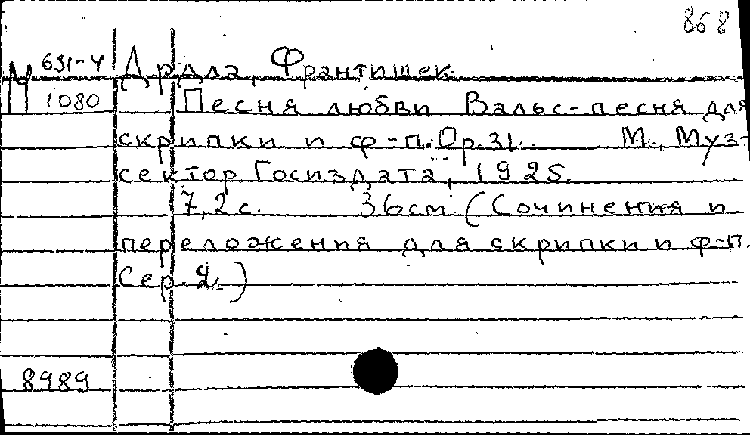 868
М 631-4 Дрдла, Франтишек.
1080 Песня любви Вальс-песня для
скрипки и ф-п. Op. 31. М., Муз-
сектор Госиздата, 1925.
7,2 с. 36 см (Сочинения и
переложения для скрипки и ф-п.
Сер. 2.)
8989